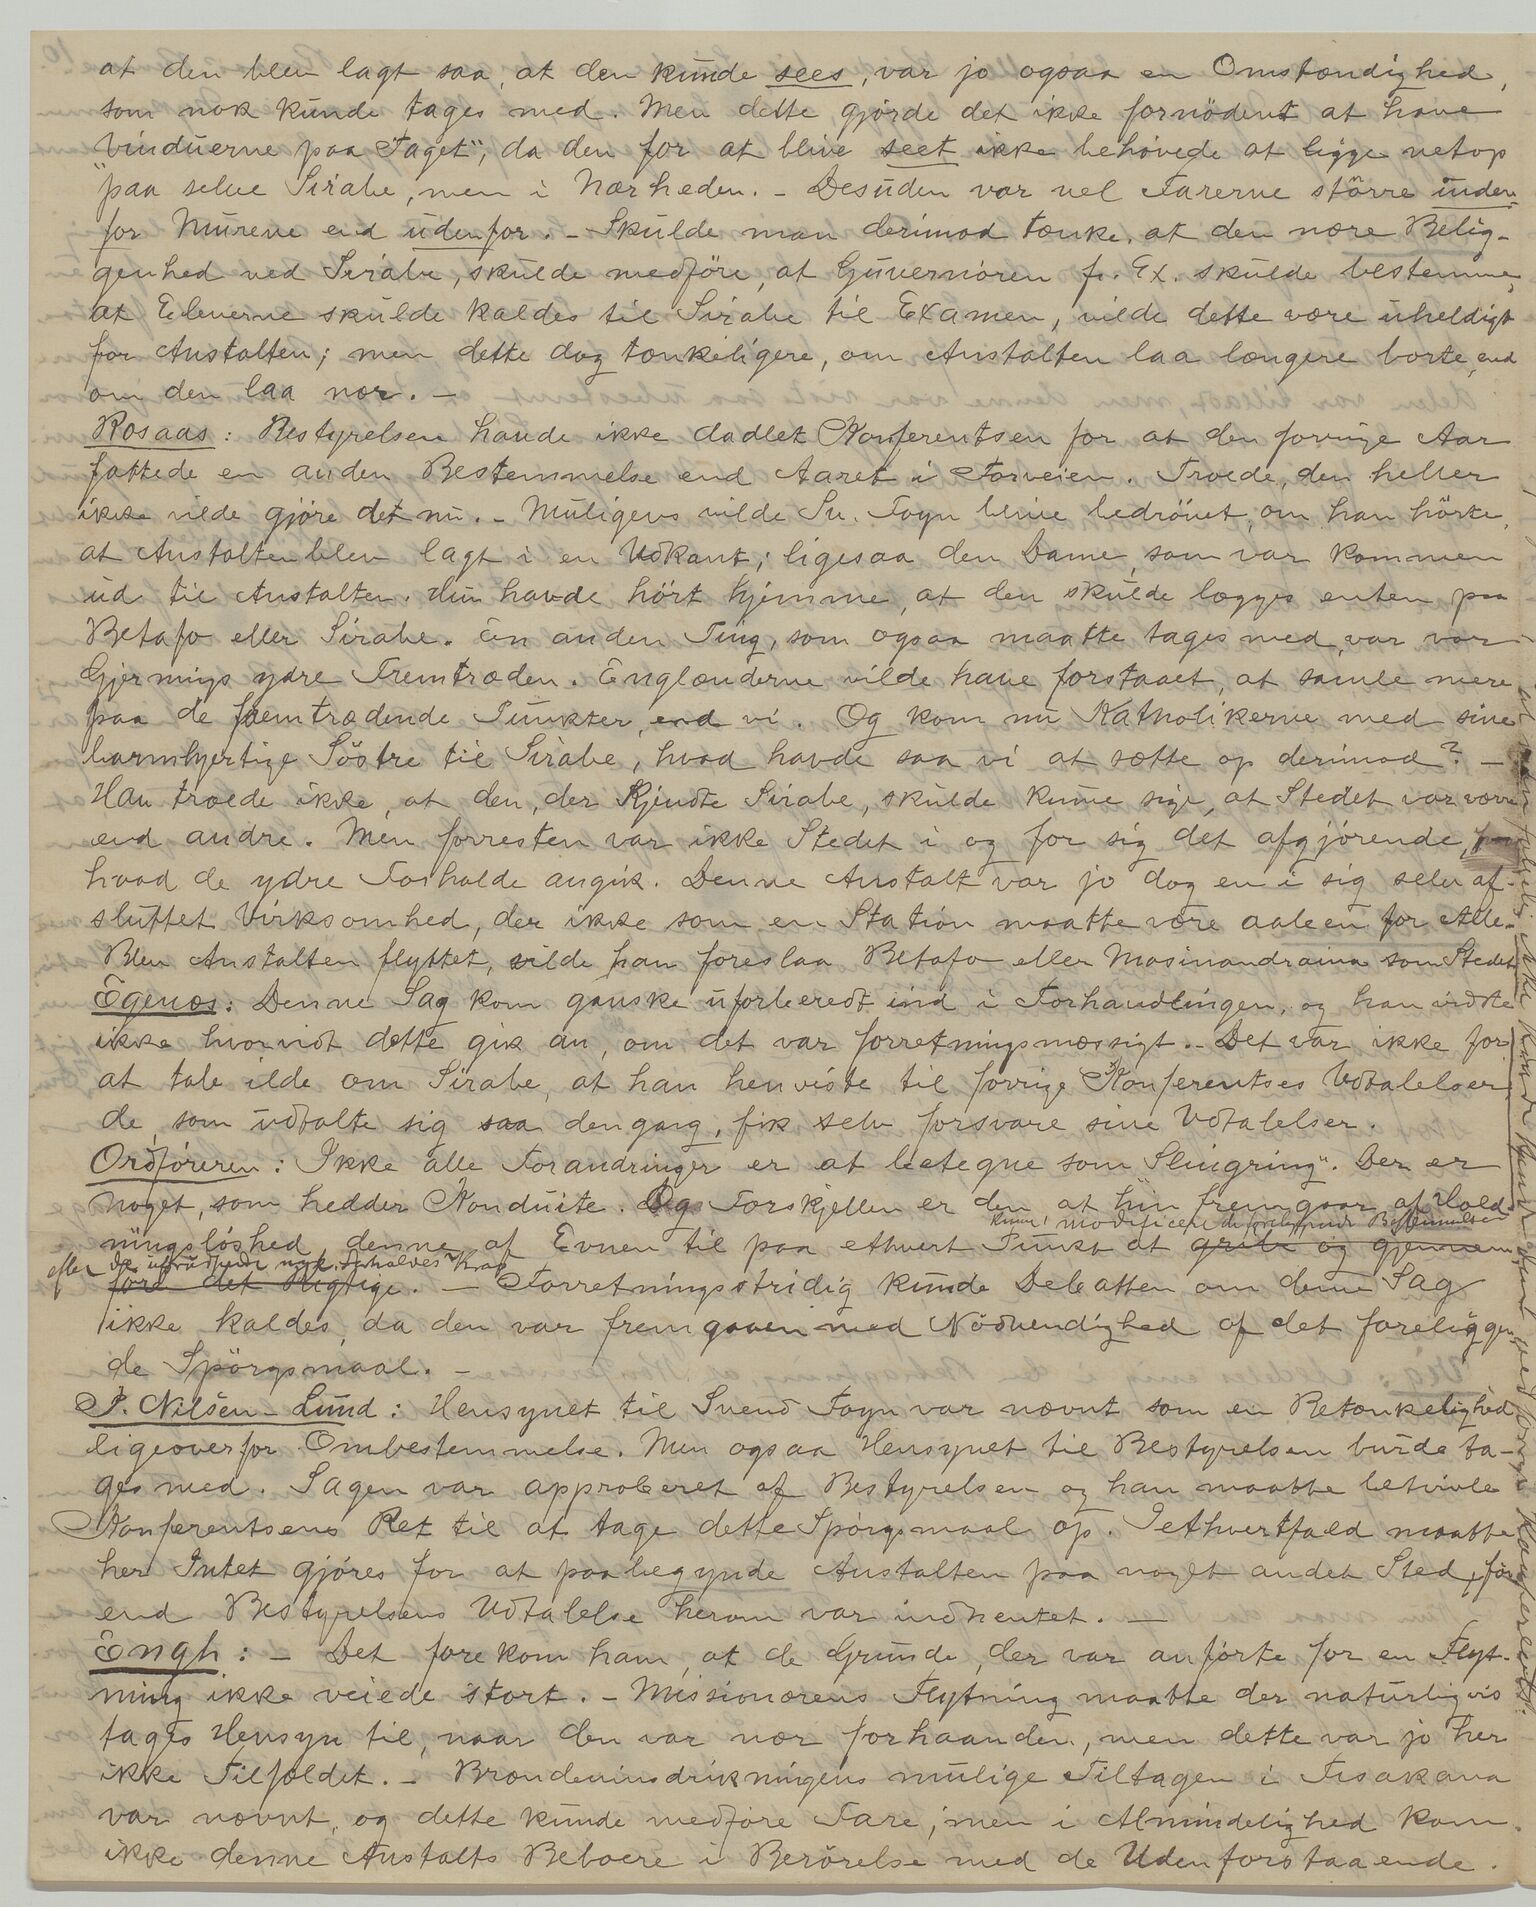 at den blev lagt saa, at den kunde sees, var jo ogsaa en Omstændighed,
som nok kunde tages med. Men dette gjørde det ikke fornødent at have
Vinduerne paa Taget", da den for at blive seet ikke behøvede at ligge netop
"paa selve Sirabe, men i Nærheden. - Desuden var vel Farerne større inden-
for Murene end udenfor. - Skulde man derimod tænke, at den nære Belig-
genhed ved Sirabe, skulde medføre, at Guvernøren f. Ex. skulde bestemme,
at Eleverne skulde kaldes til Sirabe til Examen, vilde dette være uheldigt
for Anstalten; men dette dog tænkeligere, om Anstalten laa længere borte, end
om den laa nær. -
Rosaas: Bestyrelsen havde ikke dadlet Konferentsen for at den forrige Aar
fattede en anden Bestemmelse end Aaret i Forveien. Troede, den heller
ikke vilde gjøre det nu. - Muligens vilde Sv. Foyn blive bedrøvet, om han hørte,
at Anstalten blev lagt i en Udkant; ligesaa den Dame, som var kommen
ud til Anstalten. Hun havde hørt hjemme, at den skulde lægges enten paa
Betafo eller Sirabe. En anden Ting, som ogsaa maatte tages med, var vor
Gjernings ydre Fremtræden. Englænderne vilde have forstaaet, at samle mere
paa de fremtrædende Punkter, end vi. Og kom nu Katholikerne med sine
barmhjertige Søstre til Sirabe, hvad havde saa vi at sætte op derimod? -
Han troede ikke, at den, der kjendte Sirabe, skulde kunne sige, at Stedet var værre
end andre. Men forresten var ikke Stedet i og for sig det afgjørende,
hvad de ydre Forholde angik. Denne Anstalt var jo dog en i sig selv af-
sluttet Virksomhed, der ikke som en Station maatte være aaben for Alle.
Blev Anstalten flyttet, vilde han foreslaa Betafo eller Masinandraina som Stedet
Egenæs: Denne Sag kom ganske uforberedt ind i Forhandlingen, og han vidste
ikke hvorvidt dette gik an, om det var forretningsmæssigt. - Det var ikke for
at tale ilde om Sirabe, at han henviste til forrige Konferentses Udtalelser
de, som udtalte sig saa dengang, fik selv forsvare sine Udtalelser.
Ordføreren: Ikke alle Forandringer er at betegne som Slingring". Der er
noget, som hedder Konduite. Og Forskjellen er den at hin fremgaar af Hold-
kunne modificere de foreliggende Bestemmelser
ningsløshed, denne af Evnen til paa ethvert Punkt at gribe og gjennem-
efter de Forholdes Krav
føre det Rigtige. - Forretningsstridig kunde Debatten om denne Sag
ikke kaldes, da den var fremgaaen med Nødvendighed af det foreliggen-
de Spørgsmaal. -
P. Nilsen-Lund: Hensynet til Svend Foyn var nævnt som en Betænkelighed
ligeoverfor Ombestemmelse. Men ogsaa Hensynet til Bestyrelsen burde ta-
ges med. Sagen var approberet af Bestyrelsen og han maatte betvivle
Konferentsens Ret til at tage dette Spørgsmaal op. I ethvertfald maatte
her Intet gjøres for at paabegynde Anstalten paa noget andet Sted, før-
end Bestyrelsens Udtalelse herom var indhentet. -
Engh: - Det forekom ham, at de Grunde, der var anførte for en Flyt-
ning ikke veiede stort. - Missionærens Flytning maatte der naturligvis
tages Hensyn til, naar den var nær forhaanden, men dette var jo her
ikke Tilfældet. - Brændevinsdrikningens mulige Tiltagen i Tisakana
var nævnt, og dette kunde medføre Fare; men i Almindelighed kom
ikke denne Anstalts Beboere i Berørelse med de Udenforstaaende.